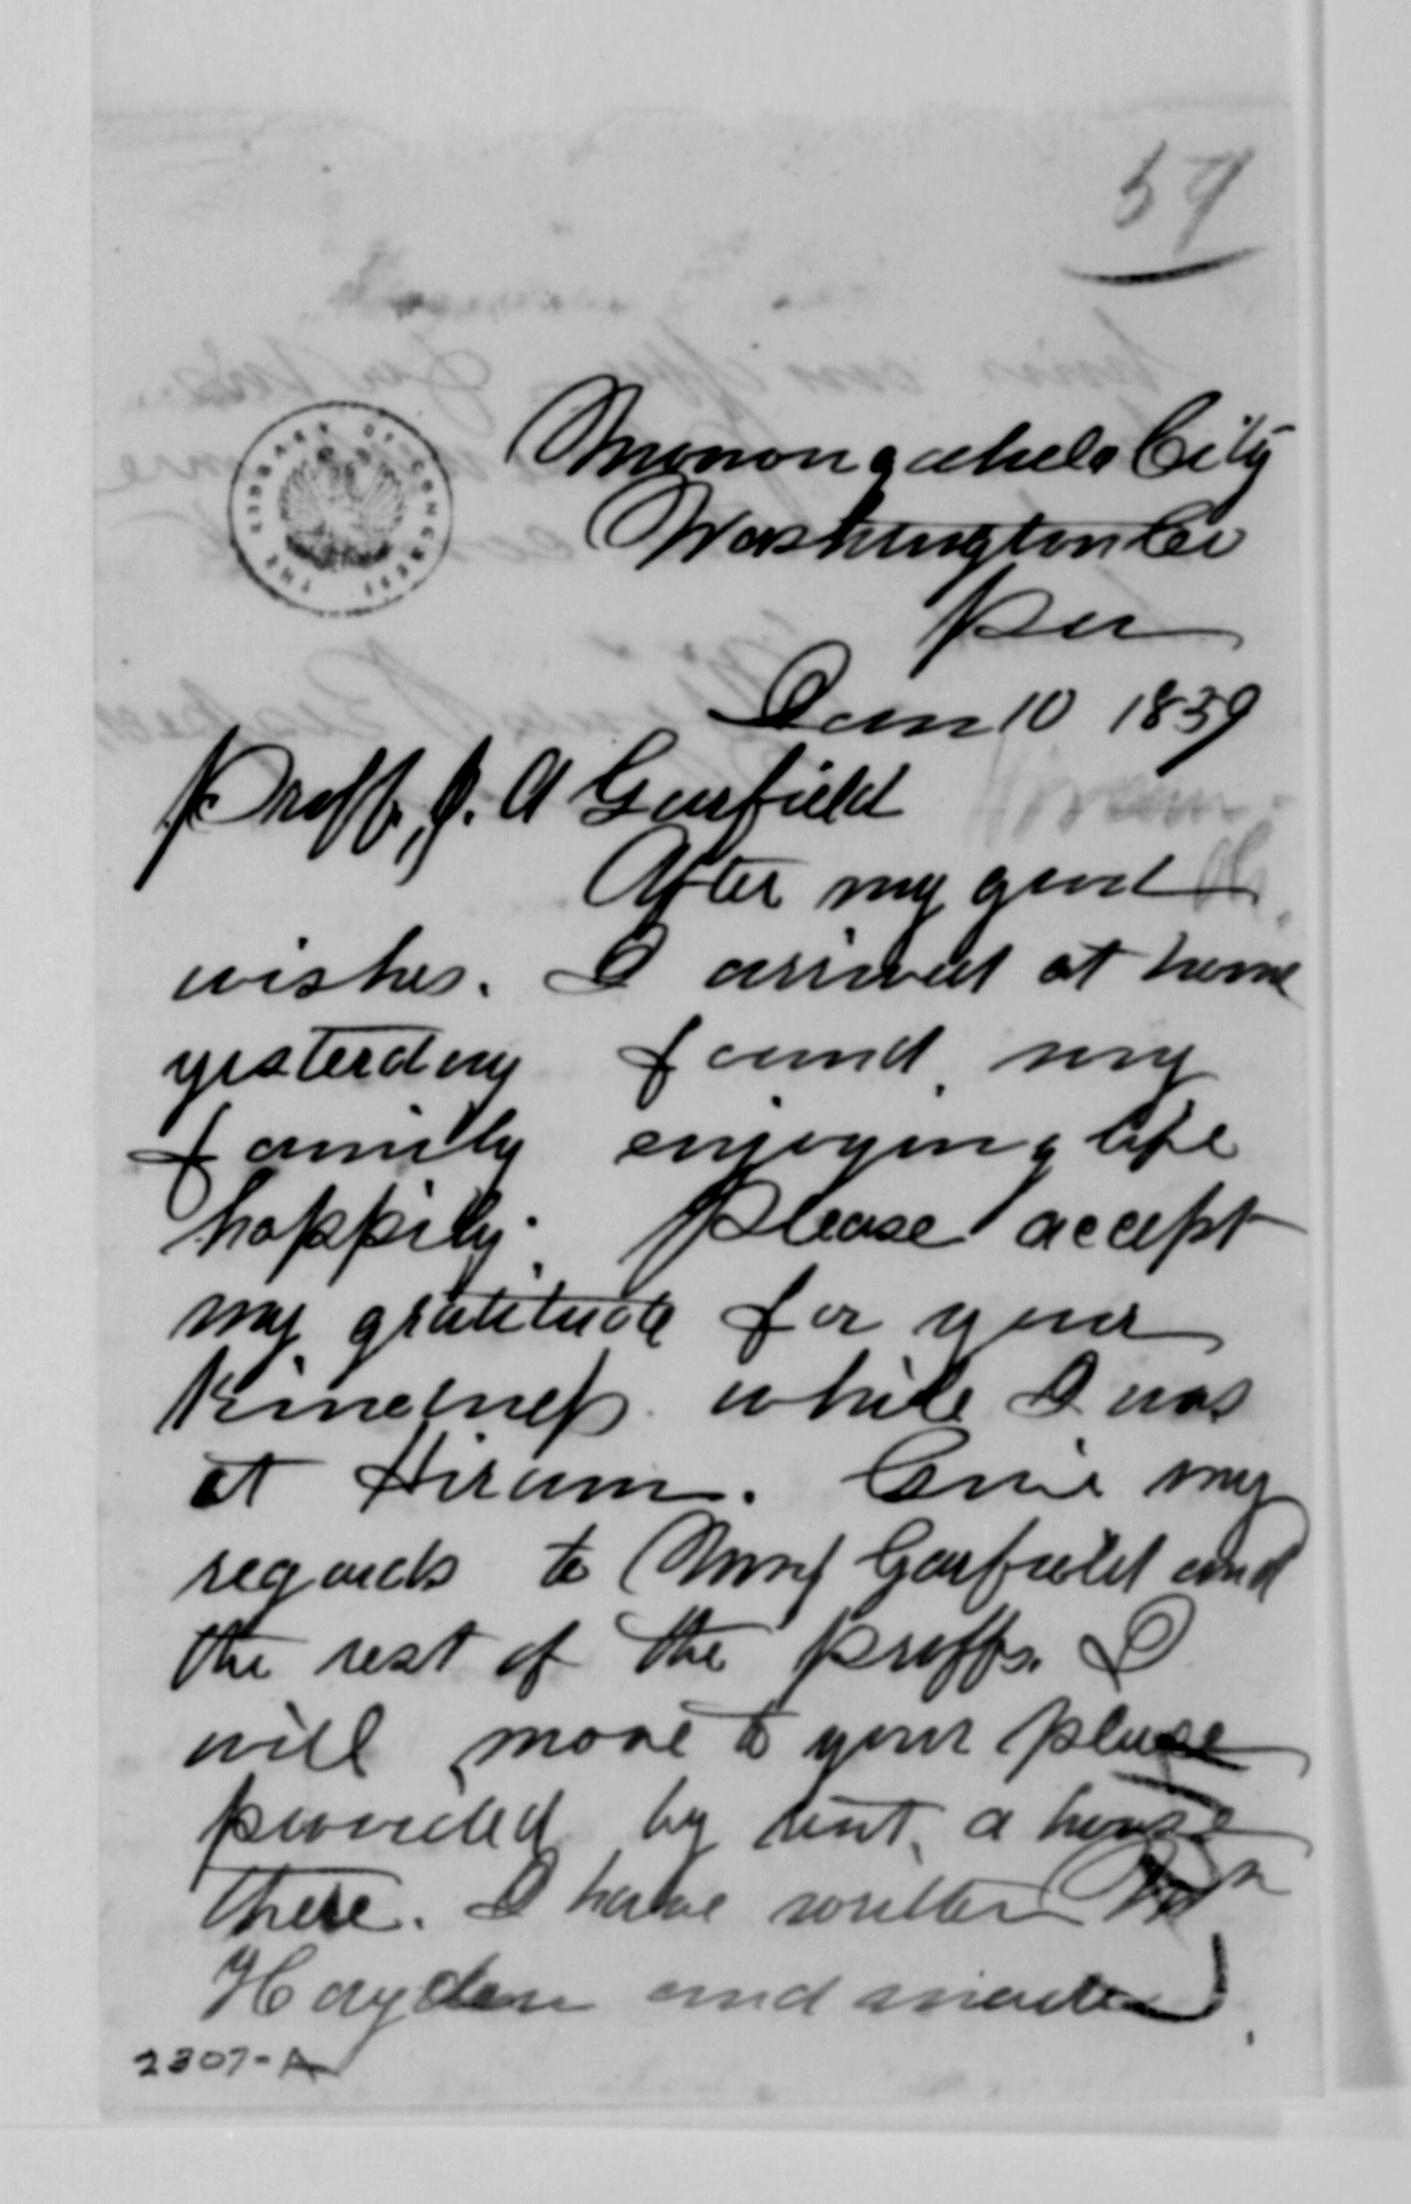 59
Monongahela City
Washington Co
Pa
Jan 10 1859
Proff, J. A Garfield
After my good
wishes. I arrived at home
yesterday found my
family enjoying life
happily. Please accept
my gratitude for your
kindness while I was
at Hiram. Give my
regards to Garfield and
the rest of the proffs. I
will move to your place
provided by rent, a house
there. I have written
Hayden and
2307-A
THE LIBRARY OF CONGRESS